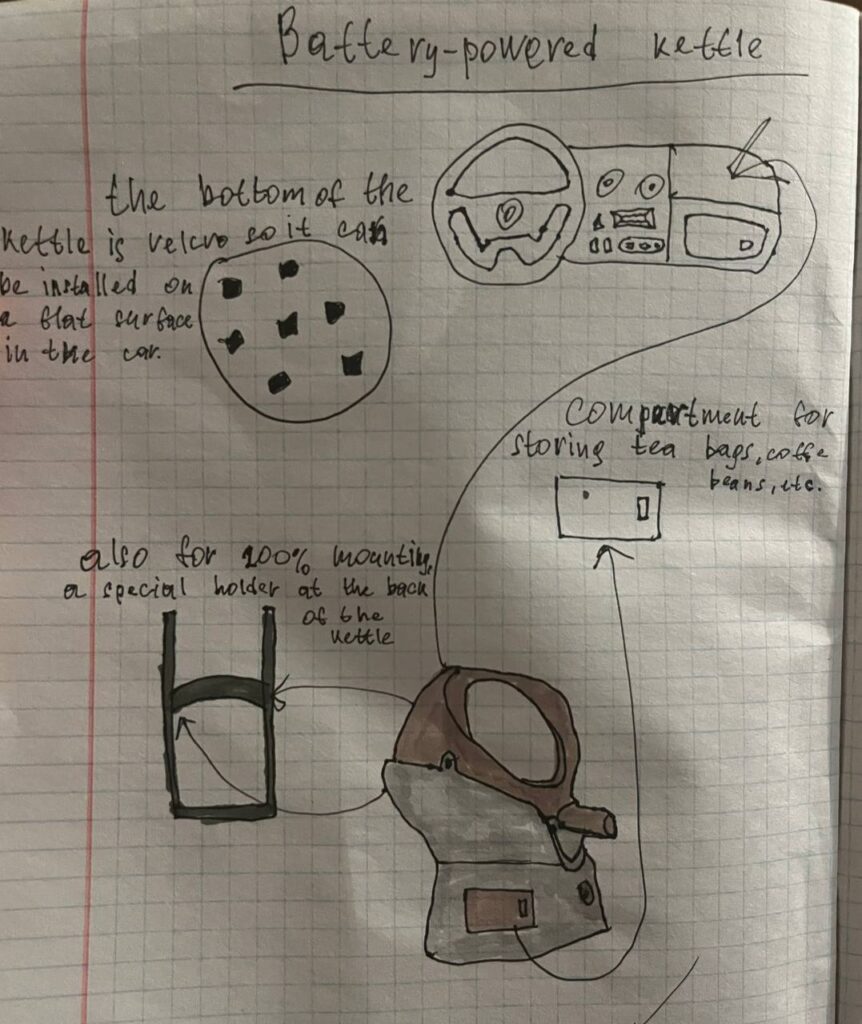 Battery-powered kettle
the bottom of the
kettle is velcro so it can
be installed on
a flat surface
in the car.
compartment for
storing tea bags, coffe
beans, etc.
also for 100% mounting,
a special holder at the back
of the
kettle